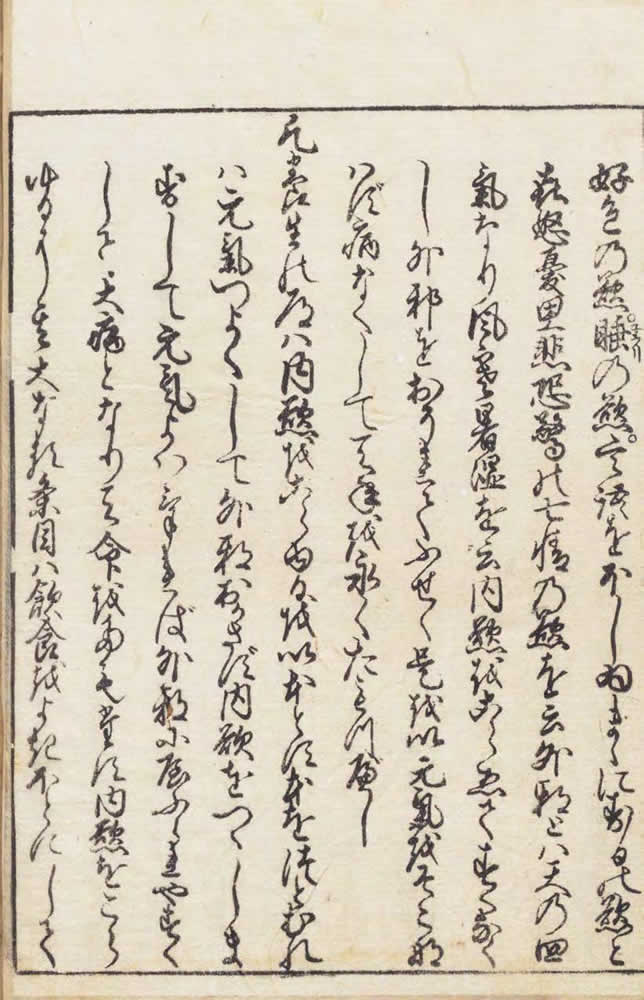 好色の慾睡の慾言語をほしゐまゝにするの慾と
喜怒憂思悲恐驚の七情の慾を云外邪とハ天の四
氣なり風寒暑湿を云内慾をこらゑてすくなく
し外邪をおそれてふせく是を以元氣をそこな
ハず病なくして天年を永くたもつべし
凡養生の道ハ内慾をこらゆるを以本とす本をつとむれ
ハ元氣つよくして外邪おかさず内慾をつゝしま
ずして元氣よハければ外邪にやふれやすく
して大病となり天命をたもたず内慾をこら
ゆるに其大なる条目ハ飲食をよきほどにして